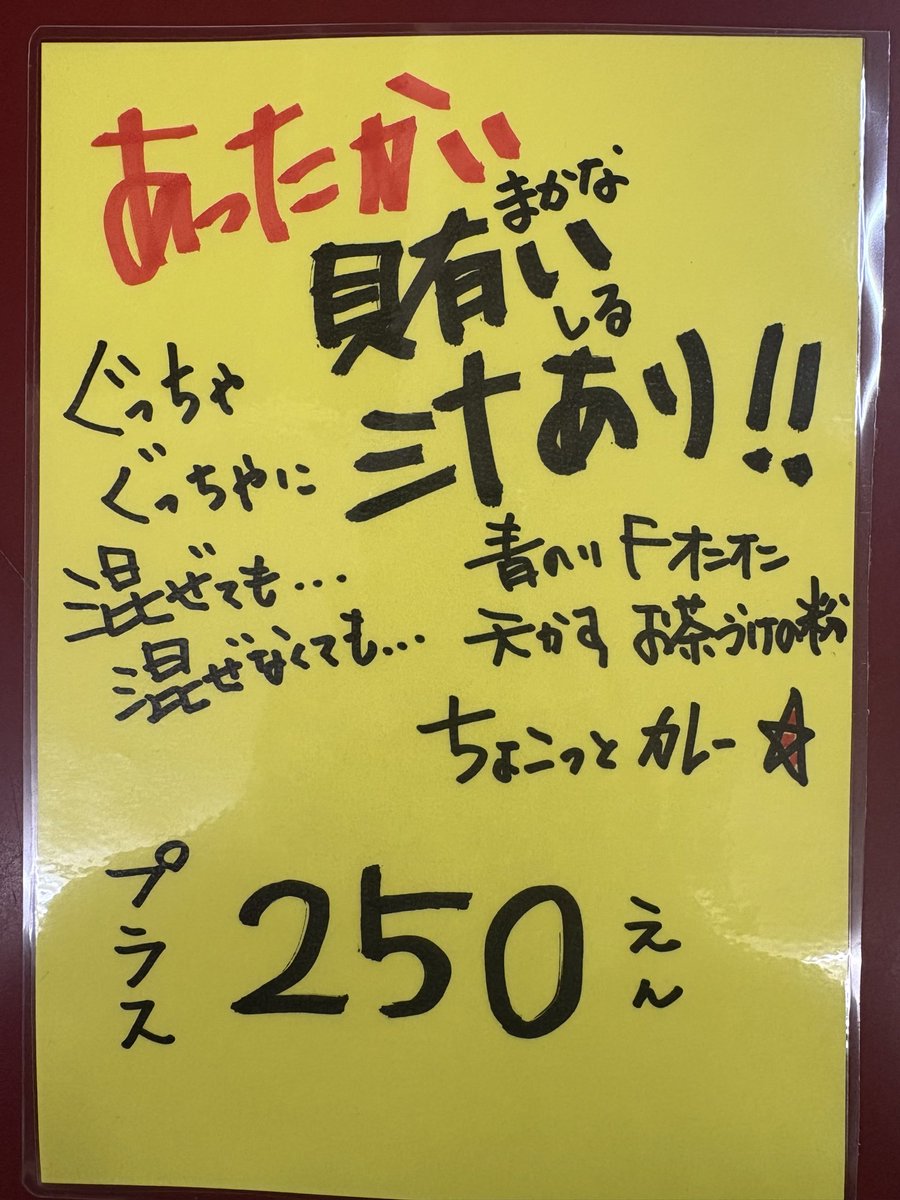 あったかい
まかな
賄い
しる
汁あり!!
ぐっちゃ
ぐっちゃに
混ぜても…
混ぜなくても…
青のり Fオニオン
天かす お茶づけの粉
ちょこっと カレー☆
プラス 250 えん